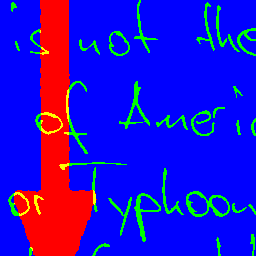 is not the
of Ameri
or Typhoon